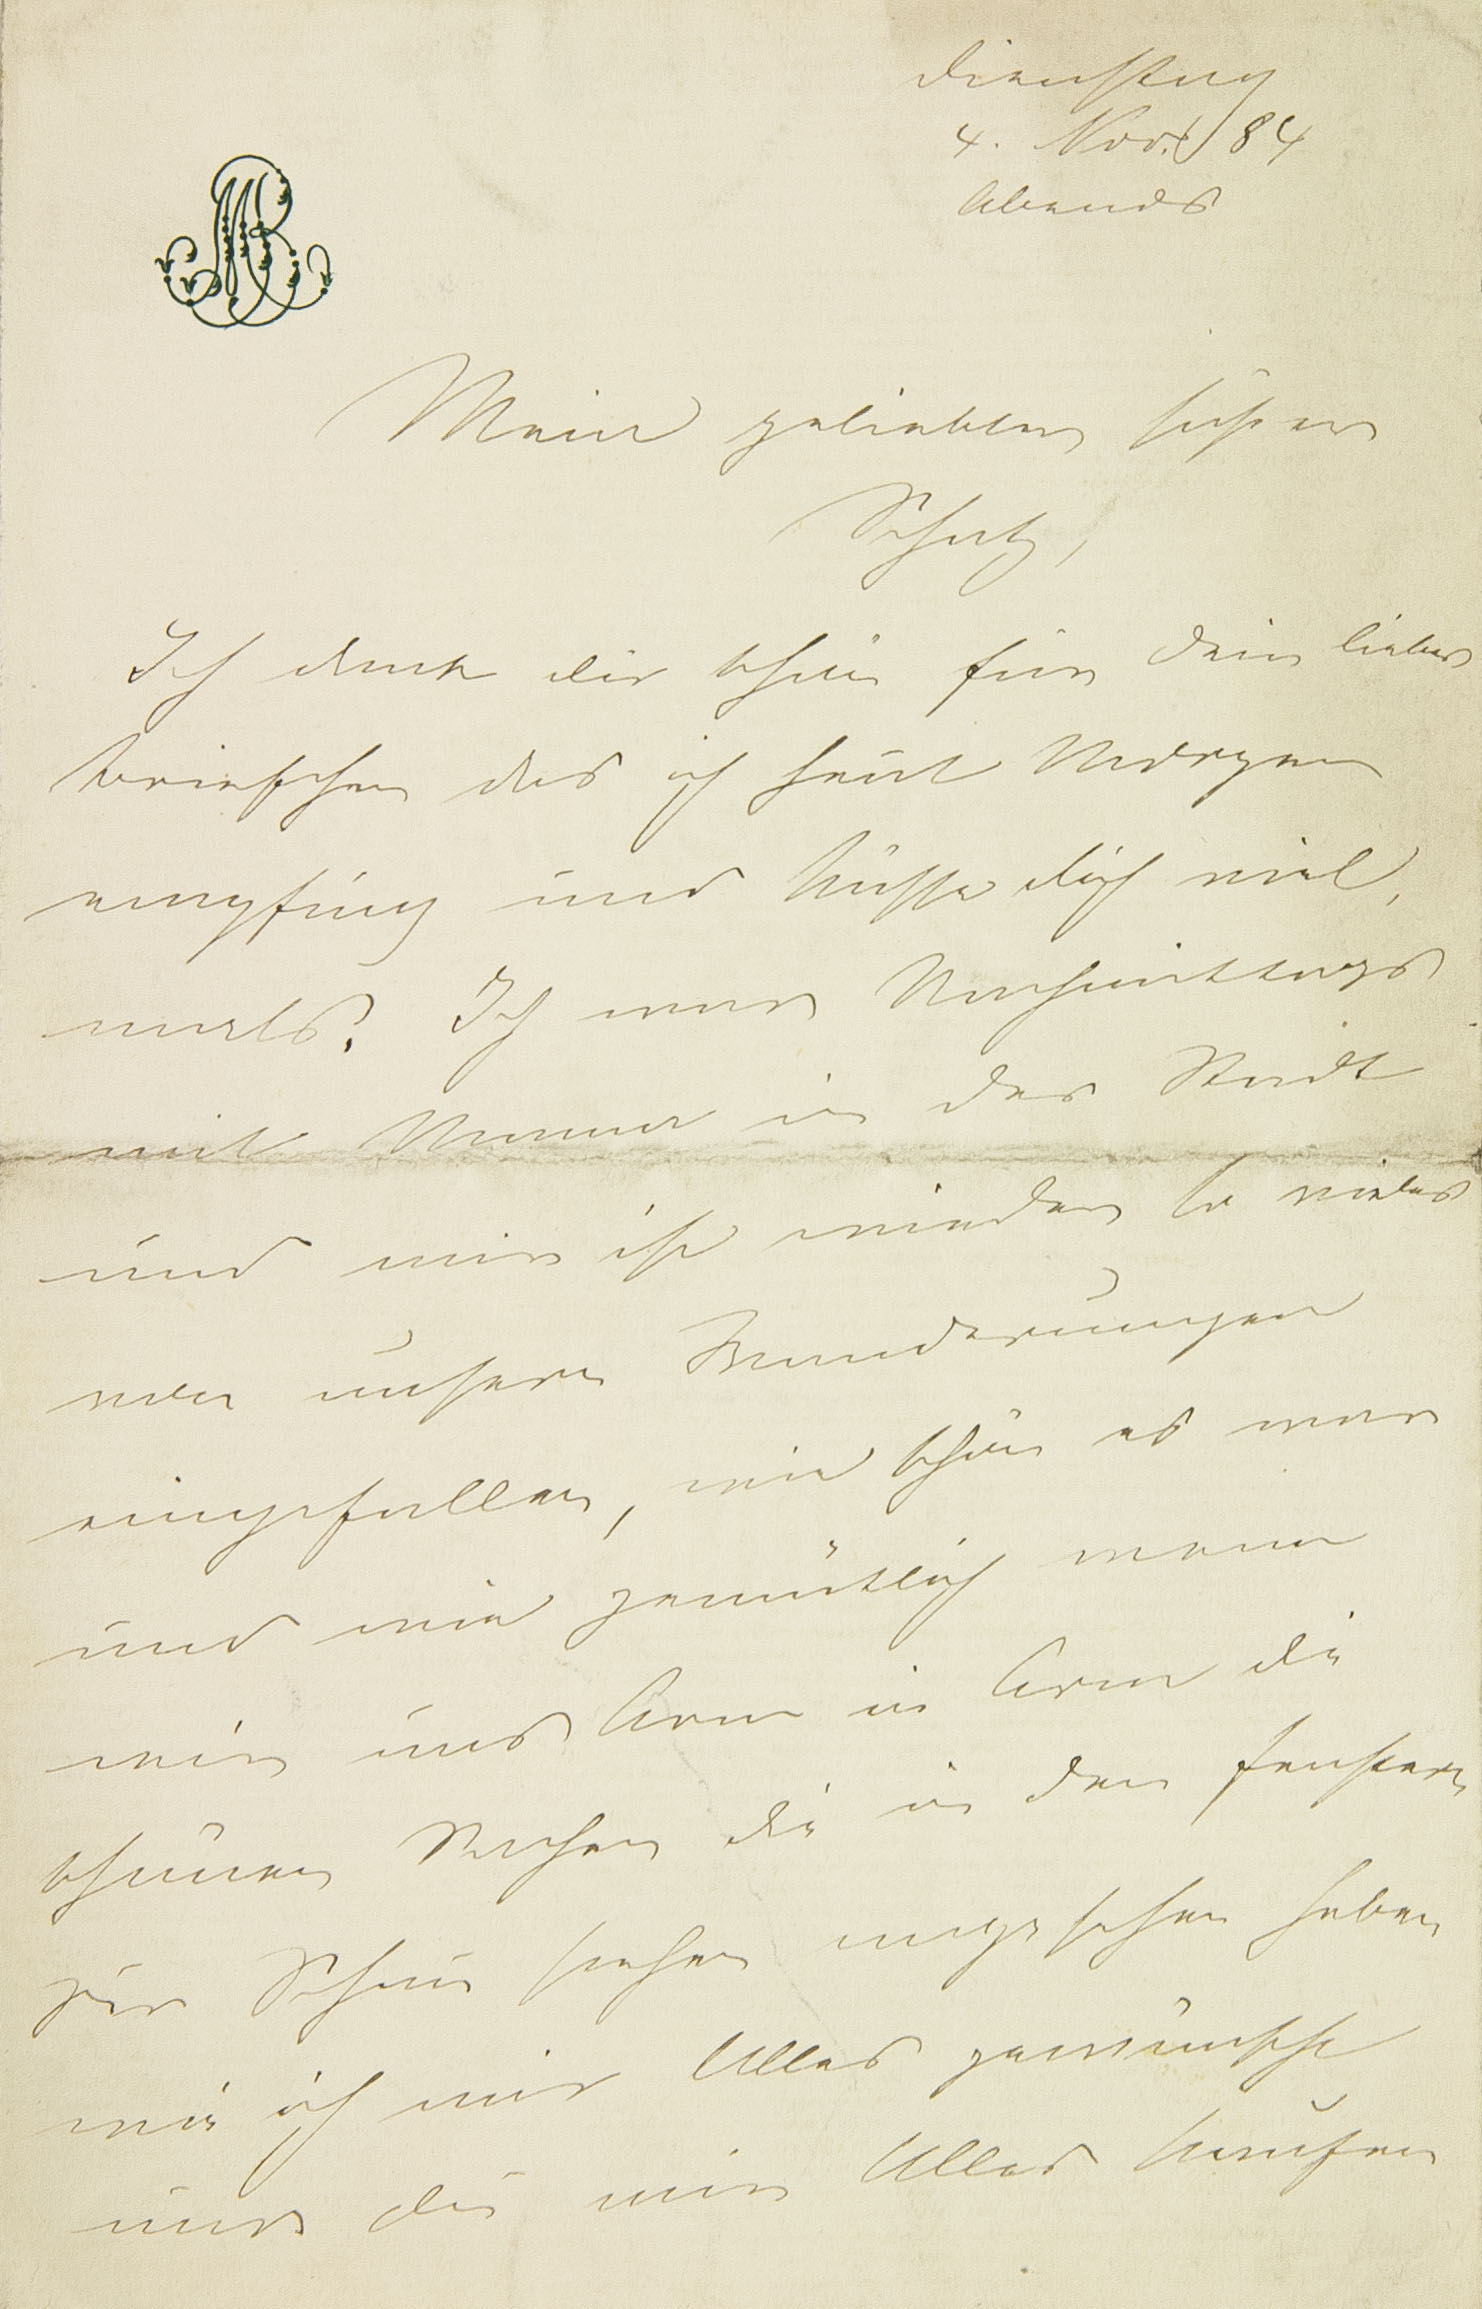 MB
Dienstag
4. Nov. 84
Abends
Mein geliebter süßer
Schatz,
Ich dank dir schön für dein liebes
Briefchen das ich heut Morgen
empfing und küsse dich viel,
mals. Ich war Nachmittags
mit Mama in der Stadt
und mir ist wieder so vieles
von unsern Wanderungen
eingefallen, wie schön es war
und wie gemütlich wenn
wir uns Arm in Arm die
schönen Sachen die in den Fenstern
zur Schau stehen angesehen haben
wie ich mir Alles gewünscht
und du mir Alles kaufen